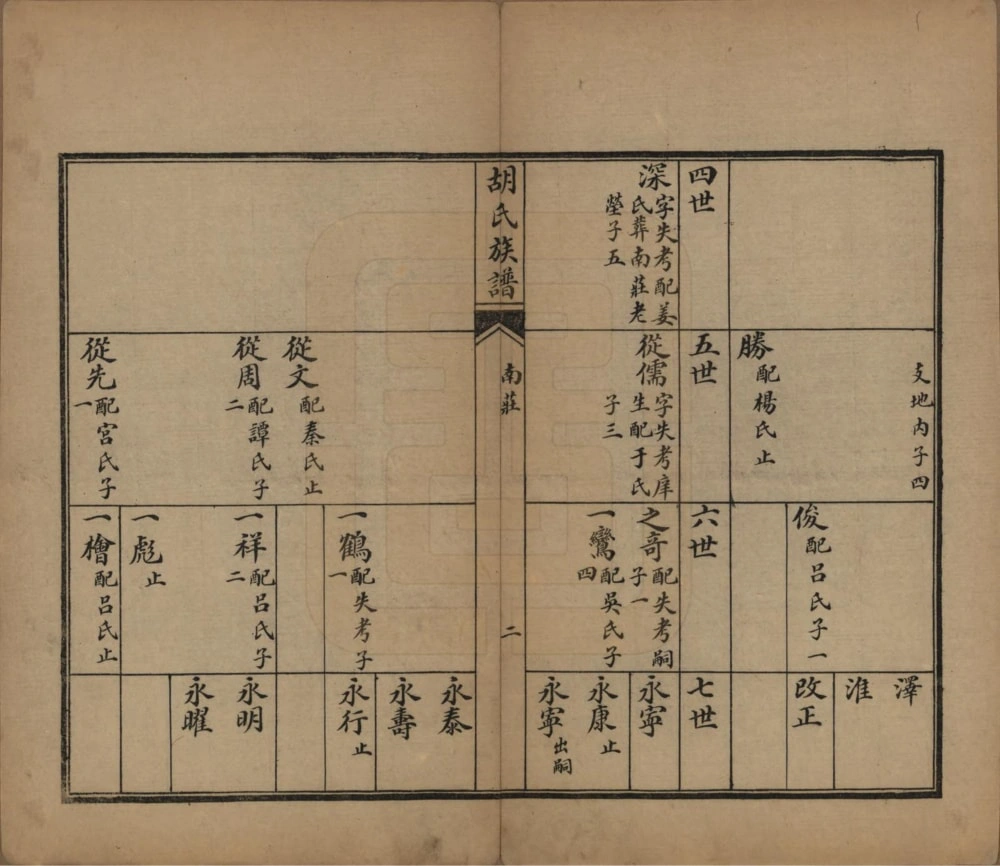 支地內子四
勝配楊氏止
俊配呂氏子一
澤
淮
改正
四世
五世
六世
七世
深字失考配姜
氏葬南莊老
塋子五
從儒字失考庠
生配于氏
子三
之奇配失考嗣
子一
永寧
一鸞配吳氏子
四
永康止
永寧出嗣
胡氏族譜
南莊
二
永泰
永壽
從文配秦氏止
從周配譚氏子
二
一鶴配失考子
一
永行止
一祥配呂氏子
二
永明
永曜
一彪止
從先配宮氏子
一
一檜配呂氏止